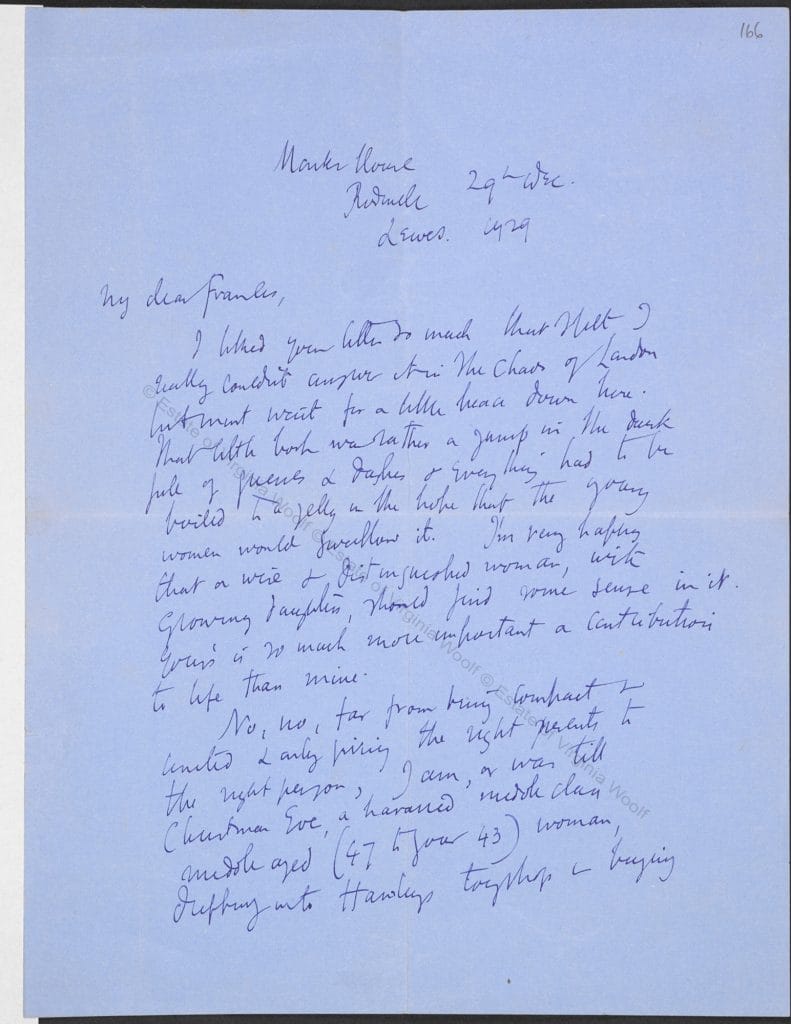 166
Monks House
Rodmell 29th Dec.
Lewes. 1929
My dear Frances,
I liked your letter so much that I felt I
really couldn't answer it in the chaos of London
but must wait for a little peace down here.
That little book was rather a jump in the dark
full of guesses & dashes & everything had to be
boiled to a jelly in the hope that the young
women would swallow it. I'm very happy
that a wise & distinguished woman, with
growing daughters, should find some sense in it.
Yours is so much more important a contribution
to life than mine.
No, no, far from being compact &
united & only giving the right presents to
the right person, I am, or was till
Christmas Eve, a harassed middle class
middle aged (47 to your 43) woman,
into Hamleys toyshop & buying
© Estate of Virginia Woolf © Estate of Virginia Woolf © Estate of Virginia Woolf